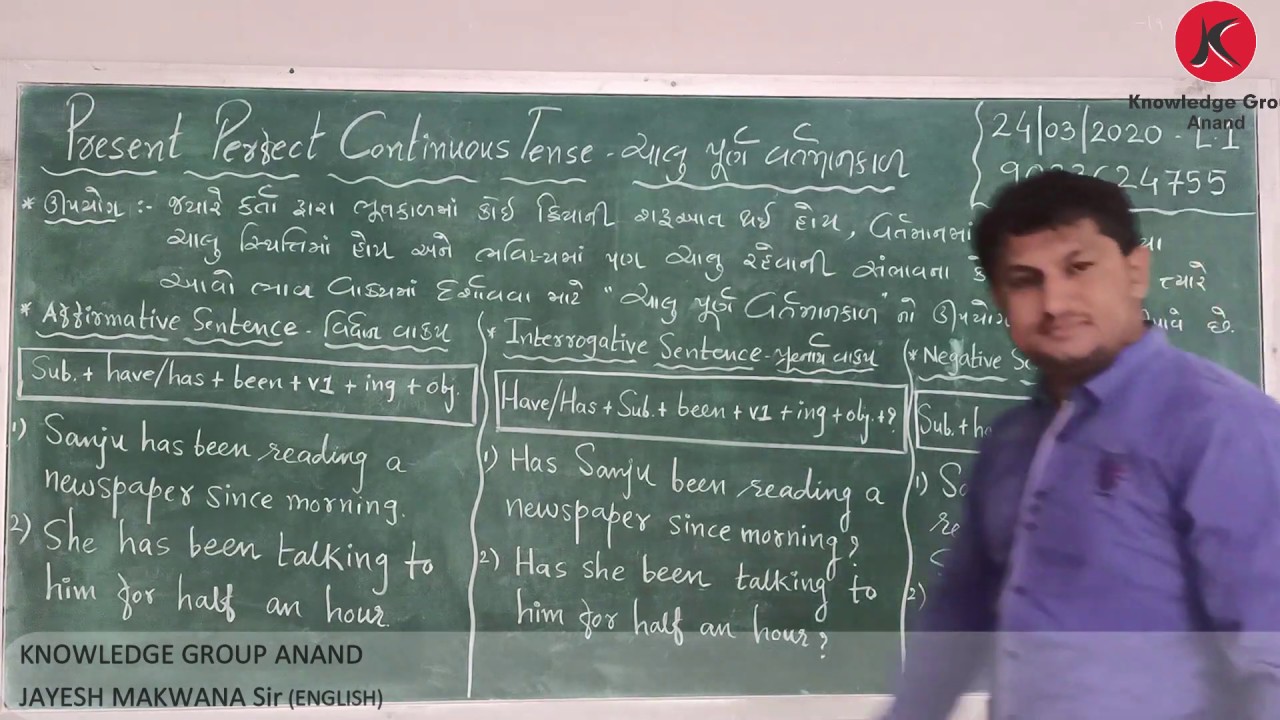 Knowledge Gro
Anand
Present Perfect Continuous Tense - ચાલુ પૂર્ણ વર્તમાનકાળ
24/03/2020 - L.1
24755
* ઉપયોગ :- જ્યારે કર્તા દ્વારા ભૂતકાળમાં કોઇ ક્રિયાની શરૂઆત થઇ હોય, વર્તમાનમાં
ચાલુ સ્થિતિમાં હોય અને ભવિષ્યમાં પણ ચાલુ રહેવાની સંભાવના ત્યારે
આવો ભાવ વાક્યમાં દર્શાવવા માટે "ચાલુ પૂર્ણ વર્તમાનકાળ" નો ઉપયોગ છે.
* Affirmative Sentence - વિધાન વાક્ય
Sub. + have/has + been + v1 + ing + obj.
1) Sanju has been reading a
newspaper since morning.
2) She has been talking to
him for half an hour.
* Interrogative Sentence - પ્રશ્નાર્થ વાક્ય
Have/Has + Sub. + been + v1 + ing + obj. + ?
1) Has Sanju been reading a
newspaper since morning?
2) Has she been talking to
him for half an hour?
* Negative
Sub. +
1)
2)
KNOWLEDGE GROUP ANAND
JAYESH MAKWANA Sir (ENGLISH)